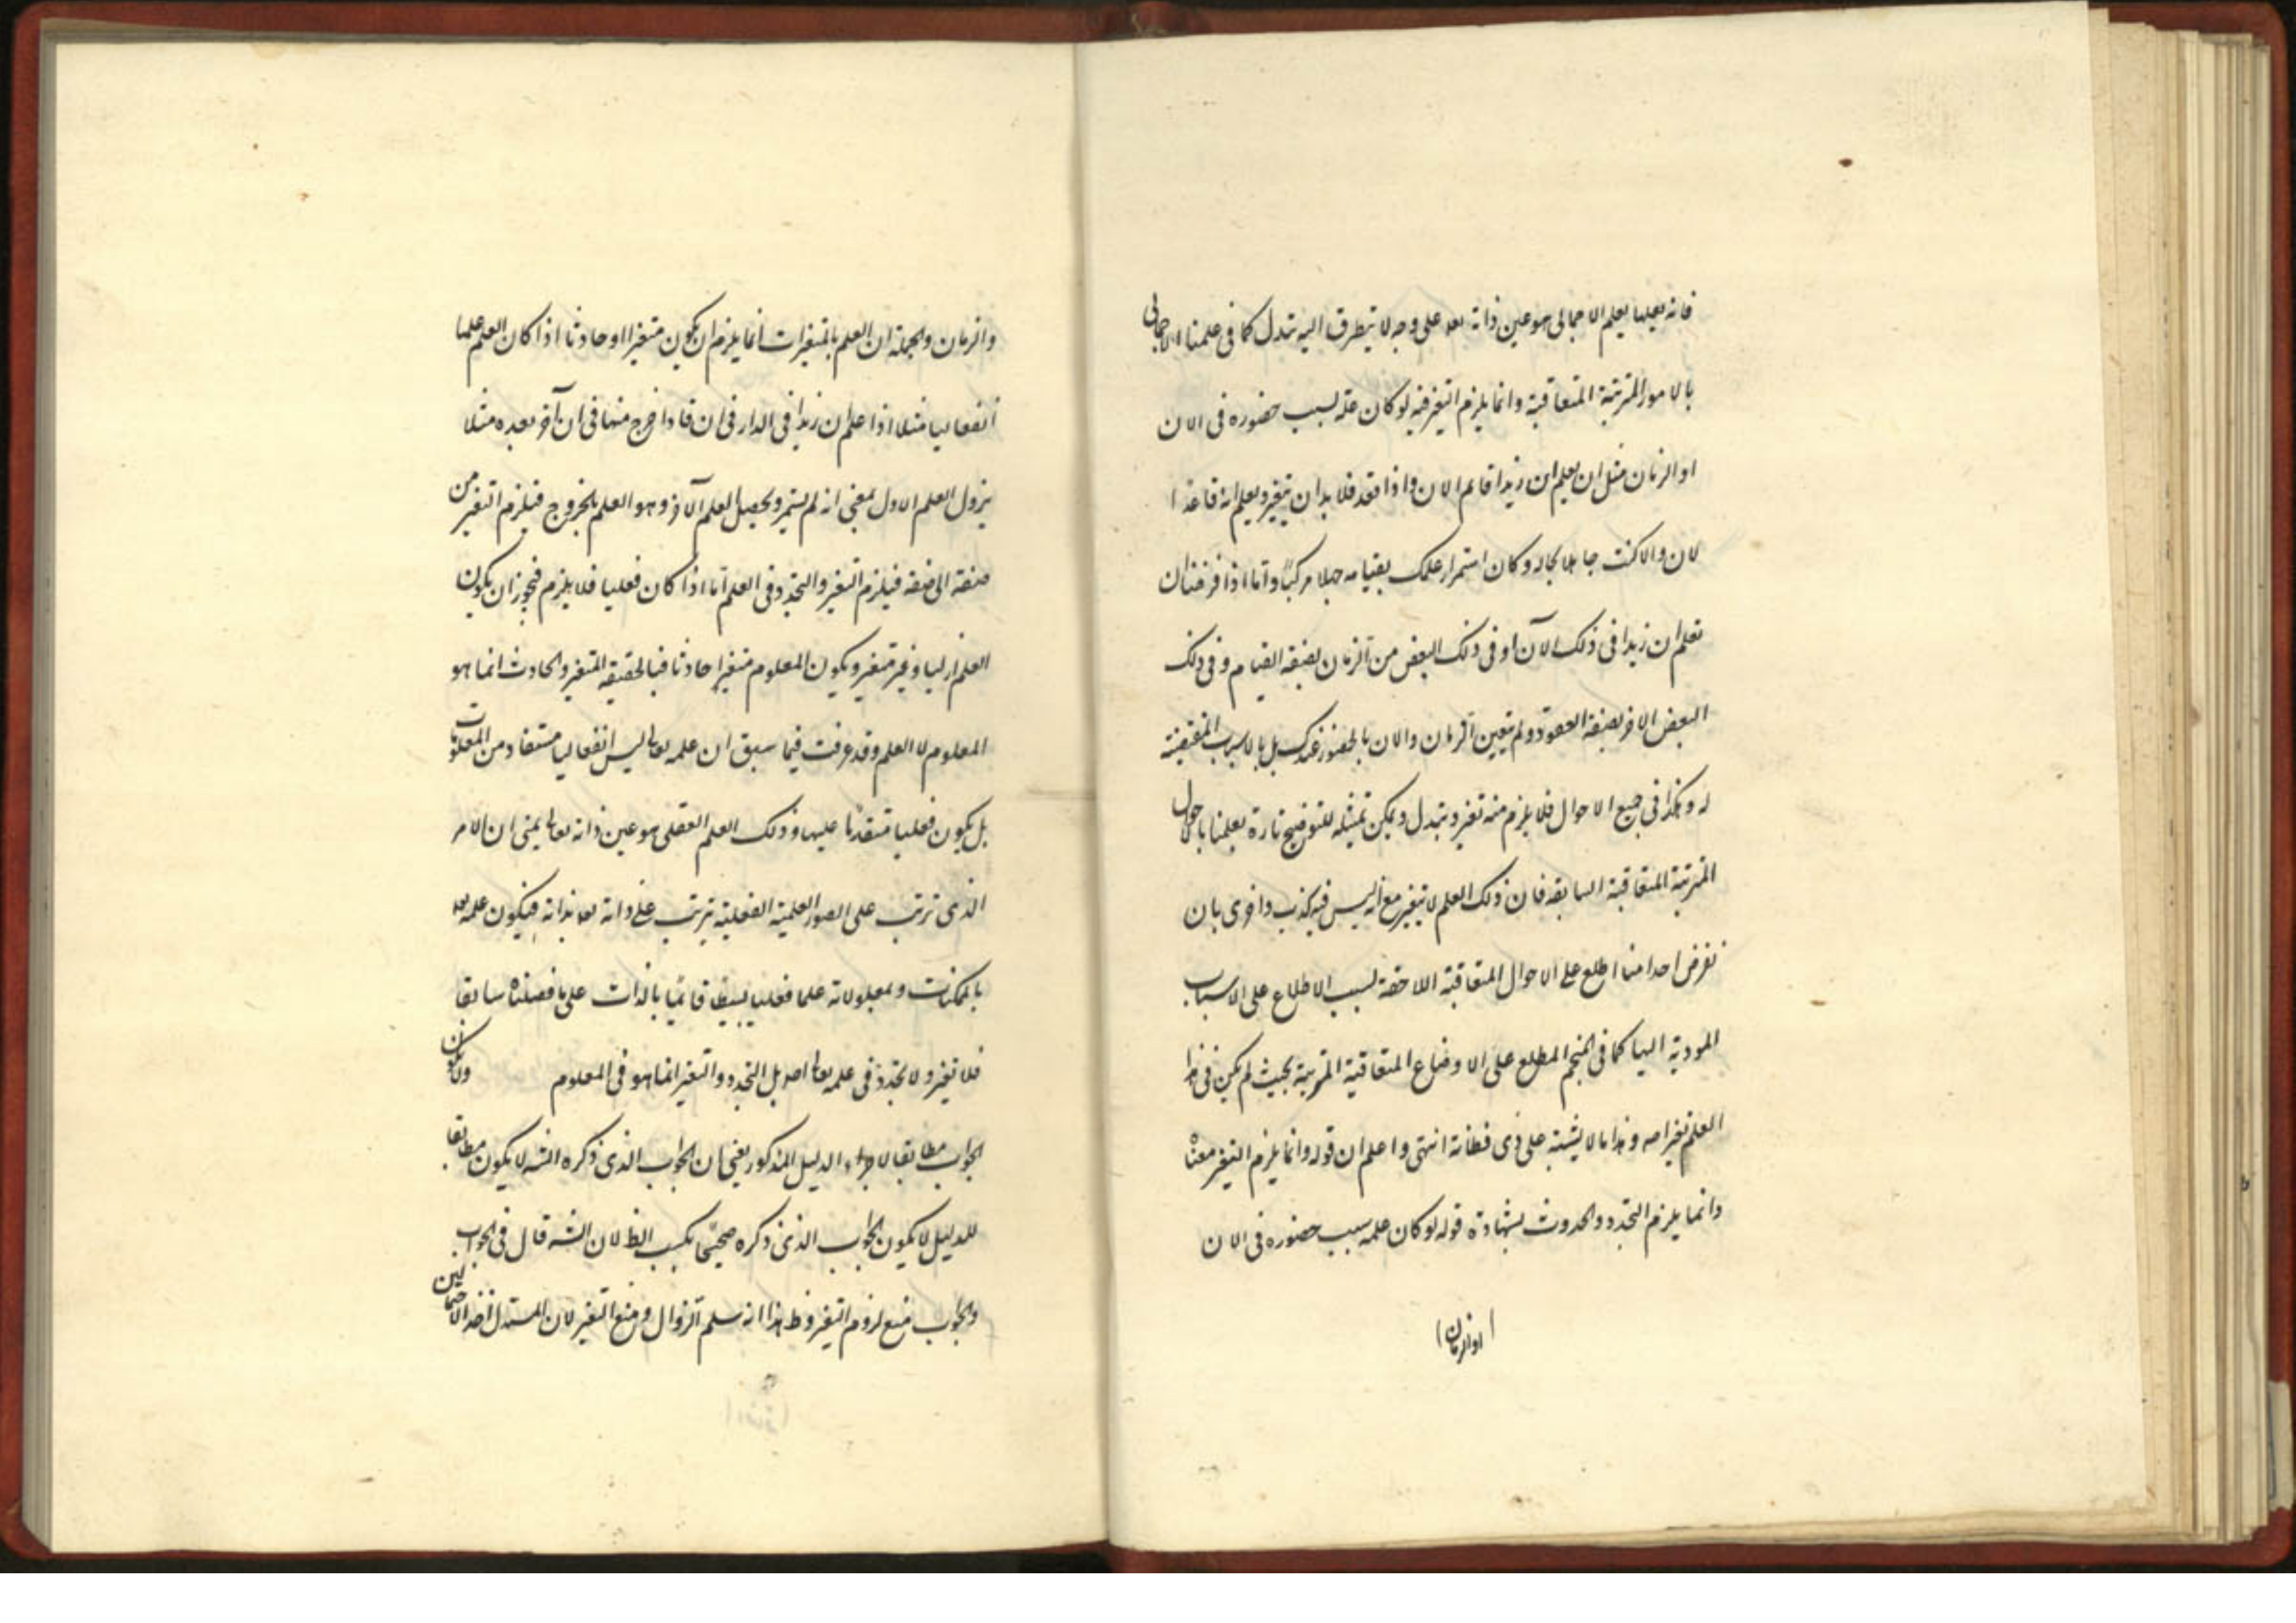 فانه يعلمها بعلمه الاجمالى هو عين ذاته تعه على وجه لا يتطرق اليه تبدل كما فى علمنا الاجمالى
بالامور المترتبة المتعاقبة وانما يلزم التغير فيه لو كان علمه بسبب حضوره فى الان
او الزمان مثل ان يعلم ان زيدا قائم الان واذا قعد فلا بد ان يتغير ويعلم انه قاعد ا
لان والا كنت جاهلا بحاله وكان استمرار علمك بقيامه جهلا مركبا واما اذا فرضنا ان
تعلم ان زيدا فى ذلك الآن او فى ذلك البعض من الزمان بصفة القيام وفى ذلك
البعض الاخر بصفة القعود ولم يتعين الزمان والان بالحضور عندك بل بالاسباب المقتضية
له وهكذا فى جميع الاحوال فلا يلزم منه تغير وتبدل ويمكن تمثيله للتوضيح تارة بعلمنا بالاحوال
المترتبة المتعاقبة السابقة فان ذلك العلم لا يتغير مع انه ليس فيه كذب واخرى بان
نفرض احدا منا اطلع على الاحوال المتعاقبة اللاحقة بسبب الاطلاع على الاسباب
المودية اليها كما فى المنجم المطلع على الاوضاع المتعاقبة المترتبة بحيث لم يكن فى هذا
العلم تغير اصه وهذا مما لا يشتبه على ذى فطانة انتهى واعلم ان قوله وانما يلزم التغير معناه
وانما يلزم التجدد والحدوث بشهادة قوله لو كان علمه بسبب حضوره فى الان
او الزمان
والزمان وبالجملة ان العلم بالمتغيرات انما يلزم ان يكون متغيرا او حادثا اذا كان العلم علما
انفعاليا مثلا اذا علم ان زيدا فى الدار فى ان فاذا خرج منها فى ان آخر بعده مثلا
يزول العلم الاول بمعنى انه لم يستمر ويحصل العلم الآخر وهو العلم بالخروج فيلزم التغير من
صفة الى صفة فيلزم التغير والتجدد فى العلم اما اذا كان فعليا فلا يلزم فيجوز ان يكون
العلم ازليا وغير متغير ويكون المعلوم متغيرا حادثا فبالحقيقة المتغير والحادث انما هو
المعلوم لا العلم وقد عرفت فيما سبق ان علمه تعالى ليس انفعاليا مستفادا من المعلومات
بل يكون فعليا متقدما عليها وذلك العلم العقلى هو عين ذاته تعالى بمعنى ان الامر
الذى ترتب على الصور العلمية الفعلية يترتب على ذاته تعه بذاته فيكون علمه تعه
بالممكنات ومعلولاته علما فعليا بسيطا قائما بالذات على ما فصلناه سابقا
فلا تغير ولا تجدد فى علمه تعالى اصه بل التجدد والتغير انما هو فى المعلوم ولا يكون
الجواب مطابقا لاجزاء الدليل المذكور يعنى ان الجواب الذى ذكره الشه لا يكون مطابقا
للدليل لا يكون الجواب الذى ذكره صحيحا بحسب الظ لان الشه قال فى الجواب
والجواب منع لزوم التغير وظ هذا انه سلم الزوال ومنع التغير لان المستدل اخذ الاحتمالين